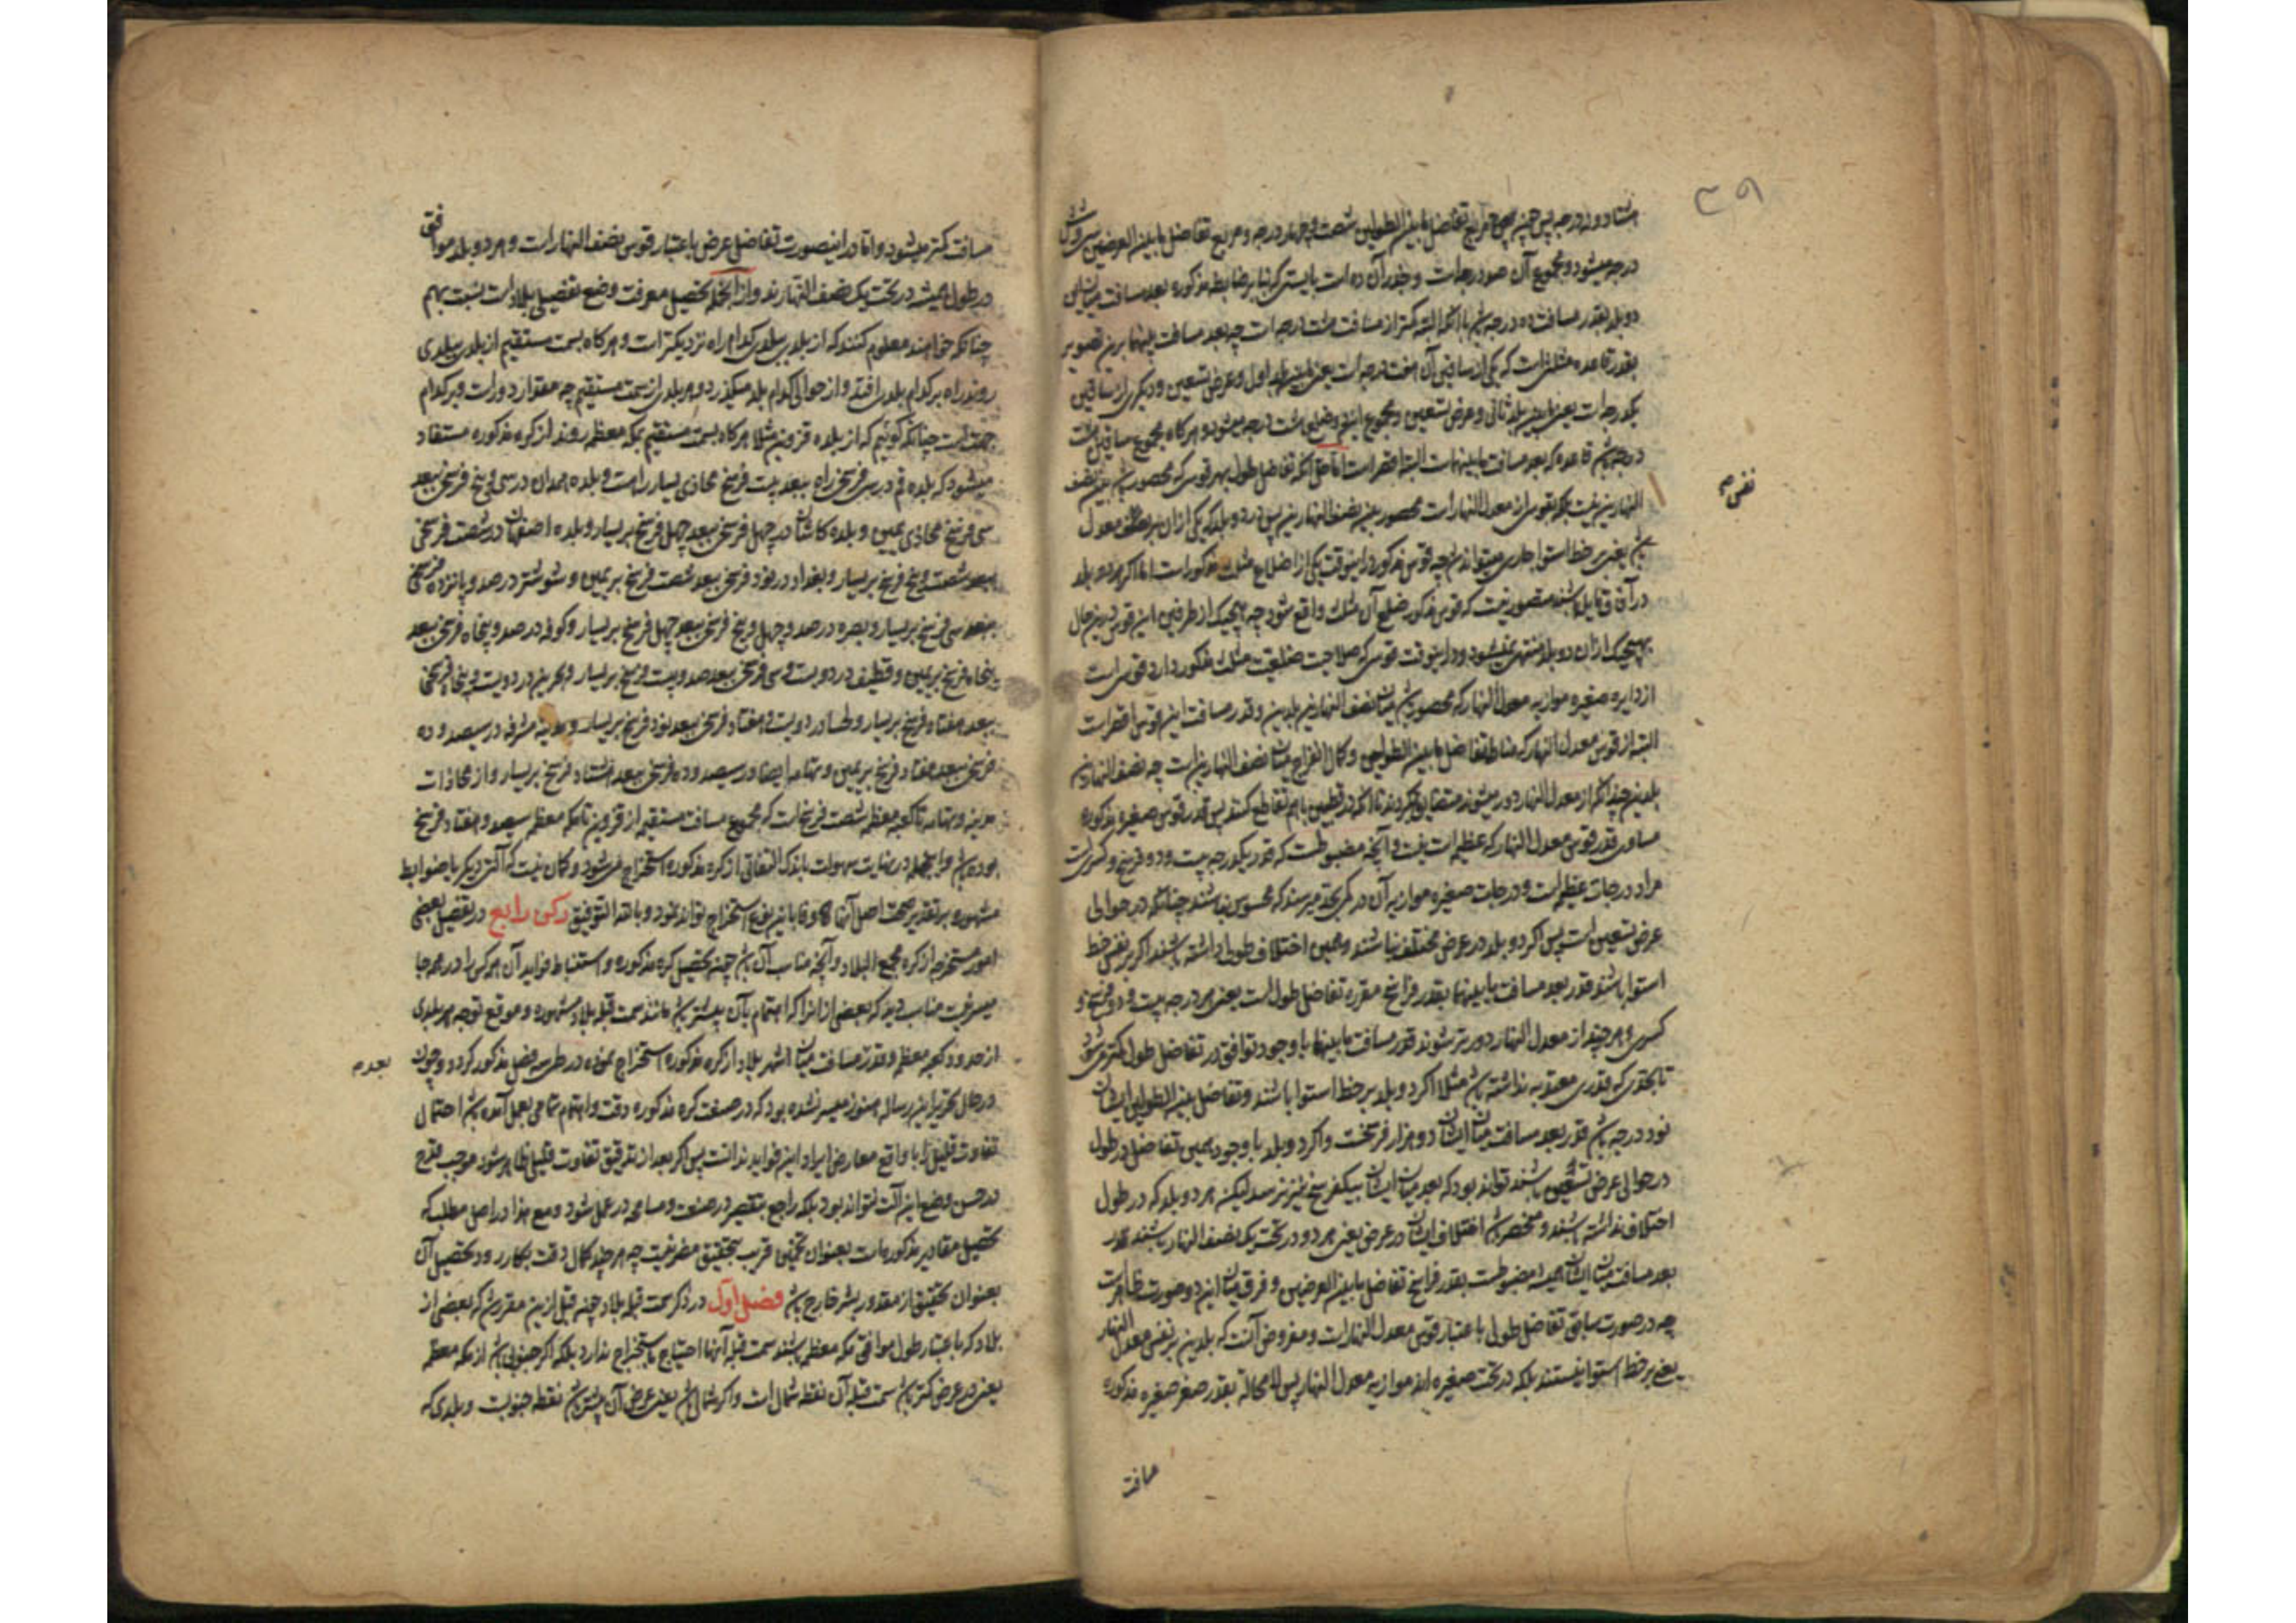 ۳۹
هشتاد و نه درجه پس مربع تفاضل مابین الطولین شصت و چهار درجه و مربع تفاضل مابین العرضین سی و شش
درجه میشود و مجموع آن صد درجه است و جذر آن ده است بایستی که بنا بر ضابطه مذکوره بعد مسافت میان این
دو بلد بقدر مسافت ده درجه باشد با آنکه البته کمتر از مسافت هشت درجه است چه بعد مسافت بینهما برین تصویر
بقدر قاعده مثلثی است که یکی از ساقین آن هفت درجه است یعنی مابین بلد اول و عرض تسعین و دیگری از ساقین
یکدرجه است یعنی مابین بلد ثانی و عرض تسعین و مجموع این دو ضلع هشت درجه میشود و هر گاه مجموع ساقین هشت
درجه باشد قاعده که بعد مسافت مابینهماست البته اقصر است اما حق آنکه تفاضل طول بهر قوس که محصور باشد بین نصف
النهارین نیست بلکه بقوس از معدل النهار است محصور بین نصف النهارین پس در دو بلد که یکی از آن بر معدل
نفس م
باشد یعنی بر خط استوا جاری میتواند شد چه قوس مذکور در اینوقت یکی از اضلاع مثلث مذکور است اما اگر هر دو بلد
در آفاق مایل باشند متصور نیست که قوس مذکور ضلع آن مثلث واقع شود چه هیچیک از طرفین این قوس درین حال
بهیچیک از آن دو بلد منتهی نمیشود و در اینوقت قوسی که صلاحیت ضلعیت مثلث مذکور دارد قوسی است
از دایره صغیره موازیه معدل النهار که محصور باشد میان نصف النهارین بلدین و قدر مسافت این قوس اقصر است
البته از قوس معدل النهار که مناط تفاضل مابین الطولین و کمال انفراج میان نصف النهارین است چه نصف النهارین
بلدین چندانکه از معدل النهار دور میشوند متضایق میگردند تا آنکه در قطبین باهم تقاطع کنند پس قدر قوس صغیره مذکوره
مساوی قدر قوس معدل النهار که عظیمه است نیست و آنچه مضبوطست که قدر یکدرجه بیست و دو فرسخ و کسری است
مراد درجات عظیمه است و درجات صغیره موازیه آن در کمی بحدی میرسند که محسوس نباشند چنانکه در حوالی
عرض تسعین است پس اگر دو بلد در عرض مختلف نباشند و همین اختلاف طول داشته باشند اگر بر نفس خط
استوا باشند قدر بعد مسافت مابینهما بقدر فراسخ مقرره تفاضل طول است یعنی هر درجه بیست و دو فرسخ و
کسری و هر چند از معدل النهار دورتر شوند قدر مسافت مابینهما با وجود توافق در تفاضل طول کمتر میشود
تا بحدی که قدری معتد به نداشته باشد مثلا اگر دو بلد بر خط استوا باشند و تفاضل بین الطولین ایشان
نود درجه باشد قدر بعد مسافت میان ایشان دو هزار فرسخست و اگر دو بلد با وجود همین تفاضل در طول
در حوالی عرض تسعین باشند تواند بود که بعد میان ایشان بیکفرسخ نیز نرسد لیکن هر دو بلد که در طول
اختلاف نداشته باشند و منحصر باشد اختلاف ایشان در عرض یعنی هر دو در تحت یک نصف النهار باشند قدر
بعد مسافت میان ایشان همیشه مضبوطست بقدر فراسخ تفاضل مابین العرضین و فرق میان این دو صورت ظاهرست
چه در صورت سابق تفاضل طول باعتبار قوس معدل النهار است و مفروض آنست که بلدین بر نفس معدل النهار
یعنی بر خط استوا نیستند بلکه در تحت صغیره اند موازیه معدل النهار پس لا محاله بقدر صغر صغیره مذکوره
مسافت
مسافت کمتر میشود و اما در اینصورت تفاضل عرض باعتبار قوس نصف النهار است و هر دو بلد موافق
در طول همیشه در تحت یک نصف النهارند و از آنجمله تحصیل معرفت وضع تفصیلی بلاد است نسبت بهم
چنانکه خواهند معلوم کنند که از بلدی ببلدی کدام راه نزدیکتر است و هر گاه بسمت مستقیم از بلدی ببلدی
روند راه بر کدام بلد می افتد و از حوالی کدام بلد میگذرد و هر بلد از سمت مستقیم چه مقدار دور است و بر کدام
جهت است چنانکه گوئیم که از بلده قزوین مثلا هر گاه بسمت مستقیم بمکه معظمه روند از کره مذکوره مستفاد
میشود که بلده قم در سی فرسخی راه ببعد بیست فرسخ محاذی یسار راه است و بلده همدان در سی و پنج فرسخی ببعد
سی فرسخ محاذی یمین و بلده کاشان در چهل فرسخی ببعد چهل فرسخ بر یسار و بلده اصفهان در شصت فرسخی
ببعد شصت و پنج فرسخ بر یسار و بغداد در نود فرسخی ببعد شصت فرسخ بر یمین و شوشتر در صد و پانزده فرسخی
ببعد سی فرسخ بر یسار و بصره در صد و چهل و پنج فرسخی ببعد چهل فرسخ بر یسار و کوفه در صد و پنجاه فرسخی ببعد
پنجاه فرسخ بر یمین و قطیف در دویست و سی فرسخی ببعد صد و بیست فرسخ بر یسار و بحرین در دویست و پنجاه فرسخی
ببعد هفتاد فرسخ بر یسار و لحسا در دویست و هفتاد فرسخی ببعد نود فرسخ بر یسار و مدینه مشرفه در سیصد و ده
فرسخی ببعد هفتاد فرسخ بر یمین و یمامه ایضا در سیصد و ده فرسخی ببعد هشتاد فرسخ بر یسار و از محاذات
مدینه و یمامه تا مکه معظمه شصت فرسخ است که مجموع مسافت مستقیم از قزوین تا مکه معظمه سیصد و هفتاد فرسخ
بوده باشد و اینجمله در نهایت سهولت باندک التفاتی از کره مذکوره استخراج میشود و گمان نیست که آلتی دیگر یا ضوابط
مشهوره بر تقدیر صحت اصل آنها وفا باینوع استخراج تواند نمود و بالله التوفیق رکن رابع در تفصیل بعضی
امور مستخرجه از کره مجمع البلاد و آنچه مناسب آن باشد چون تحصیل کره مذکوره و استنباط فواید آن هر کس را در همه جا
میسر نیست مناسب دید که بعضی از آنرا که اهتمام بآن بیشتر باشد مانند سمت قبله بلاد مشهوره و موقع توجه هر بلدی
از حدود کعبه معظمه و قدر مسافت میان اشهر بلاد از کره مذکوره استخراج نموده در طی سه فصل مذکور گردد و چون
بعد م
در حال تحریر این رساله هنوز میسر نشده بود که در صنعت کره مذکوره دقت و اهتمام تمامی بعمل آمده باشد احتمال
تفاوت قلیل را با واقع معارض ایراد این فواید ندانست پس اگر بعد از تدقیق تفاوت قلیلی ظاهر شود موجب قدح
در حسن وضع این آلت نتواند بود بلکه راجع بتقصیر در صنعت و مسامحه در عمل شود و مع هذا در اصل مطلب که
تحصیل مقادیر مذکوره است بعنوان تخمینی قریب بتحقیق مضر نیست چه هر چند کمال دقت بکار رود تحصیل آن
بعنوان تحقیق از مقدور بشر خارج باشد فصل اول در ذکر سمت قبله بلاد چون قبل ازین مقرر شد که بعضی از
بلاد که باعتبار طول موافق مکه معظمه باشند سمت قبله آنها احتیاج باستخراج ندارد بلکه اگر جنوبی باشد از مکه معظمه
یعنی در عرض کمتر باشد سمت قبله آن نقطه شمال است و اگر شمالی باشد یعنی عرض آن بیشتر باشد نقطه جنوبست و بلدی که